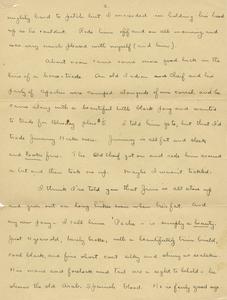 2.
mighty hard to pitch but I succeeded in holding his head
up so he couldn't. Rode him off and on all morning and
was very much pleased with myself (and him).
About noon came some more good luck in the
line of a horse-trade. An old Indian and Chief and his
party of Apaches were camped alongside of our corral and he
came along with a beautiful little black pony and wanted
to trade for Bluebay plus $5. I told him no, but that I'd
trade Jimmy Hicks even. Jimmy is all fat and sleek
and looks fine. The old Chief got on and rode him around
a bit and then took me up. Maybe I wasn't tickled.
I think I've told you that Jim is all stove up
and give out on long hikes even when he's fat. And
my new pony - I call him "Pache - is simply a beauty.
Just 4 years old, lovely, with a beautifully build,
coal black and fine short coat silky and shiny as satin.
His mane and forelock and tail are a sight to behold - he
shows the old Arab Spanish blood. He is fairly good sized